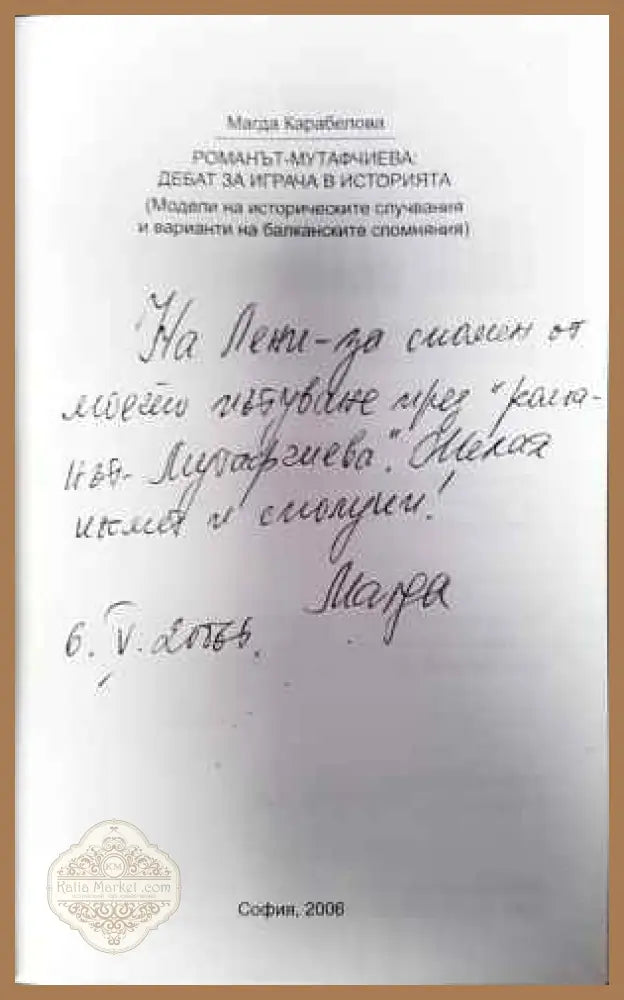 Магда Карабелова
РОМАНЪТ-МУТАФЧИЕВА:
ДЕБАТ ЗА ИГРАЧА В ИСТОРИЯТА
(Модели на историческите случвания
и варианти на балканските спомняния)
На Лени-за спомен от
моето пътуване през "рома-
нът-Мутафчиева".
късмет и сполуки!
Магда
6. V. 2006г.
KM
Kalia Market .com
София, 2006